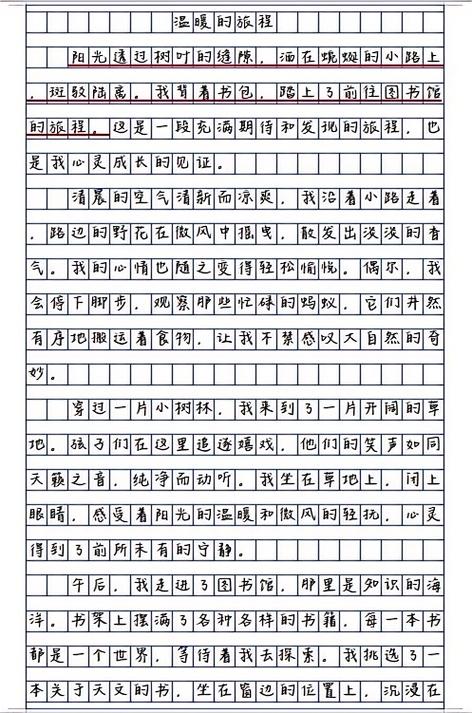 温暖的旅程
阳光透过树叶的缝隙，洒在蜿蜒的小路上
，斑驳陆离。我背着书包，踏上了前往图书馆
的旅程。这是一段充满期待和发现的旅程，也
是我心灵成长的见证。
清晨的空气清新而凉爽，我沿着小路走着
，路边的野花在微风中摇曳，散发出淡淡的香
气。我的心情也随之变得轻松愉悦。偶尔，我
会停下脚步，观察那些忙碌的蚂蚁，它们井然
有序地搬运着食物，让我不禁感叹大自然的奇
妙。
穿过一片小树林，我来到了一片开阔的草
地。孩子们在这里追逐嬉戏，他们的笑声如同
天籁之音，纯净而动听。我坐在草地上，闭上
眼睛，感受着阳光的温暖和微风的轻抚，心灵
得到了前所未有的宁静。
午后，我走进了图书馆，那里是知识的海
洋。书架上摆满了各种各样的书籍，每一本书
都是一个世界，等待着我去探索。我挑选了一
本关于天文的书，坐在窗边的位置上，沉浸在